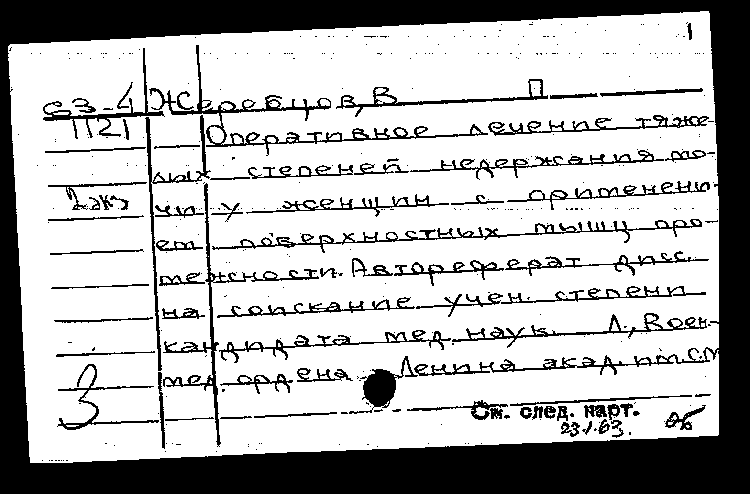 1
63-4 Жеребцов, В П
1121 Оперативное лечение тяже-
лых степеней недержания мо-
2 экз чи у женщин с применени-
ем поверхностных мышц про-
межности. Автореферат дисс.
на соискание учен. степени
кандидата мед. наук. Л., Воен.-
мед. ордена Ленина акад. им. С.М
3
См. след. карт.
23.1.63.